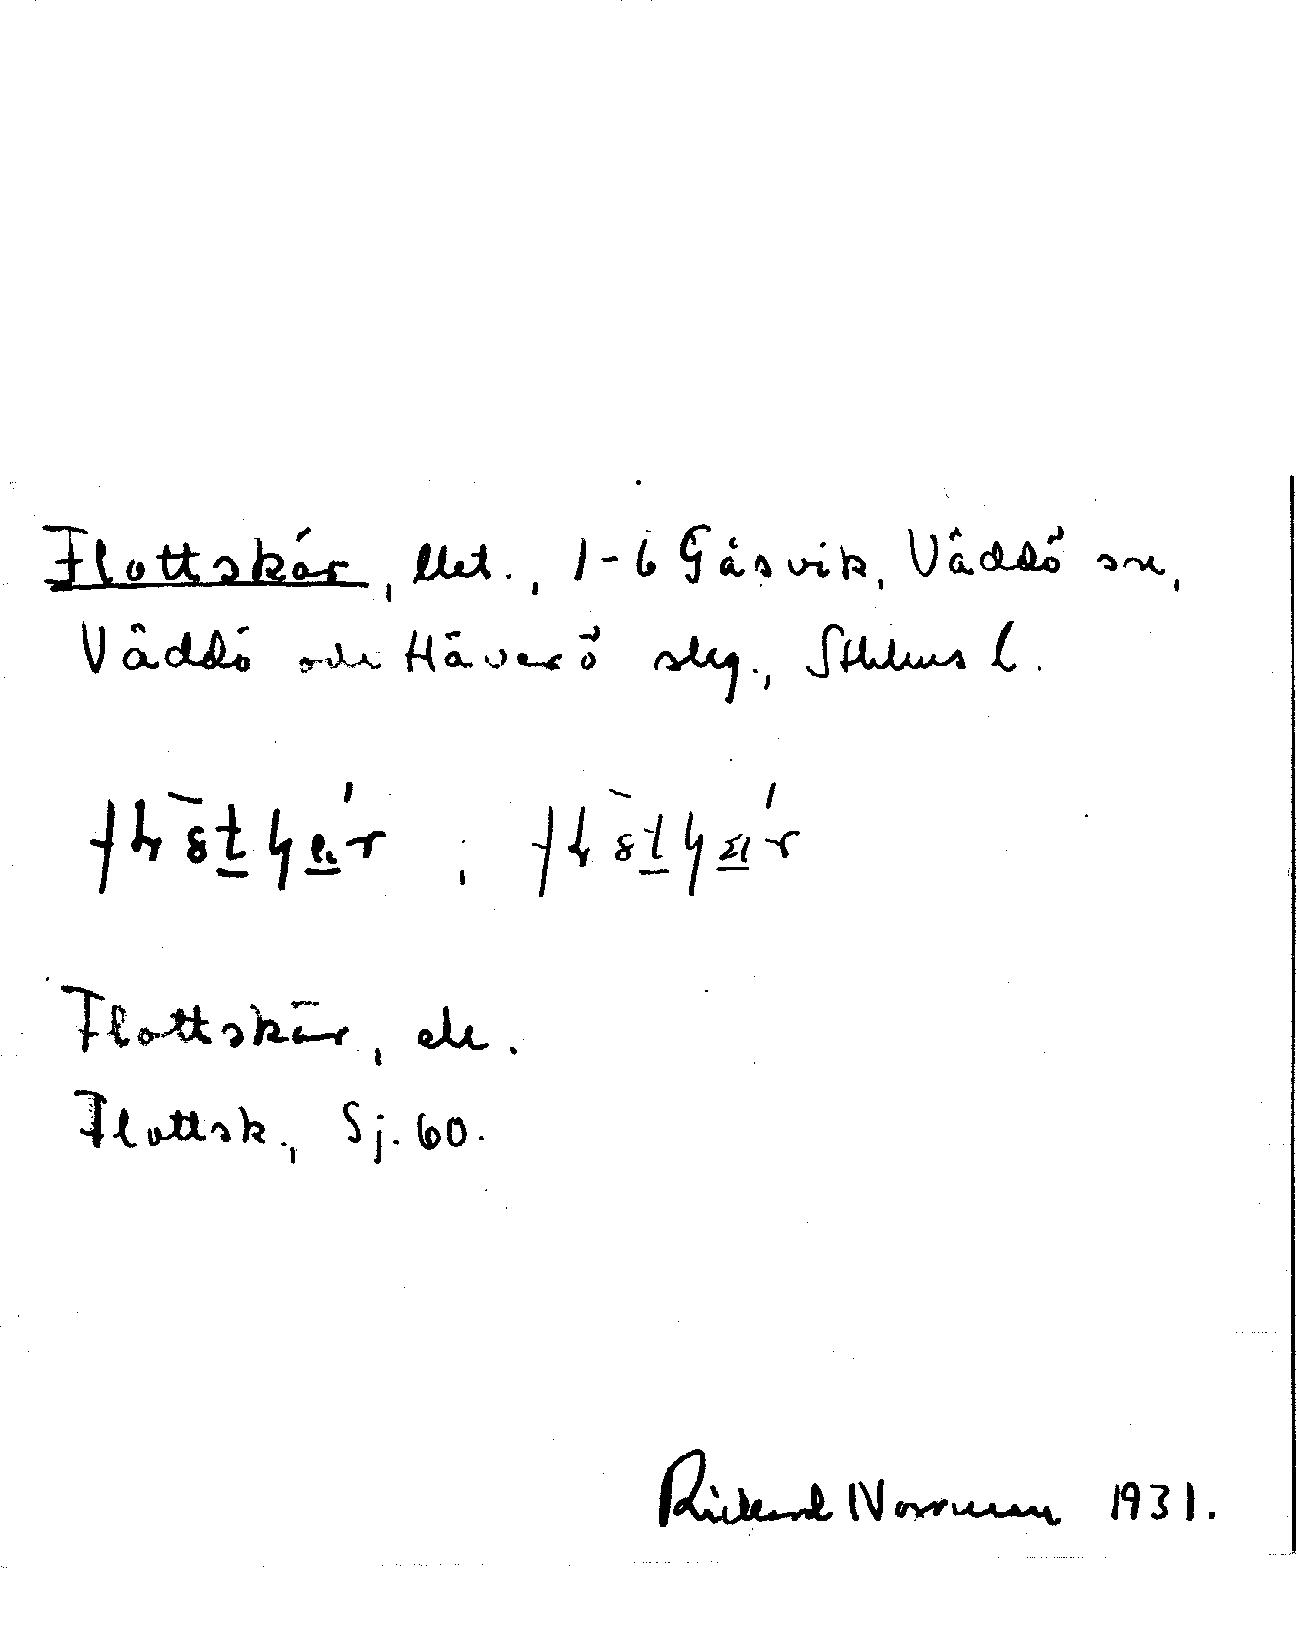 Flottskär, 1-6 Gåsvik, Väddö sn,
Väddö och Häverö slg., Sthlms l.
Flottskär, ek.
Flottsk., Sj. 60.
Rickard Norrman 1931.